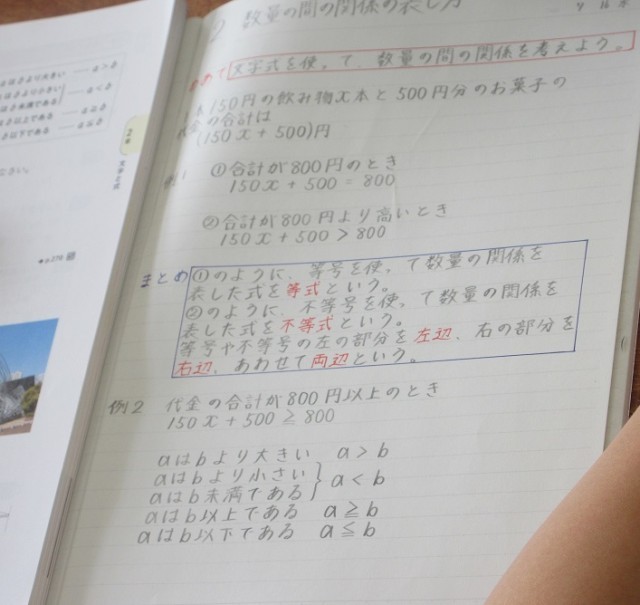 数量の間の関係の表し方
めあて 文字式を使って、数量の間の関係を考えよう。
1本150円の飲み物x本と500円分のお菓子の
代金の合計は
(150x+500)円
例1 ①合計が800円のとき
150x+500=800
②合計が800円より高いとき
150x+500>800
まとめ ①のように、等号を使って数量の関係を
表した式を等式という。
②のように、不等号を使って数量の関係を
表した式を不等式という。
等号や不等号の左の部分を左辺、右の部分を
右辺、あわせて両辺という。
例2 代金の合計が800円以上のとき
150x+500≧800
aはbより大きい a>b
aはbより小さい
aはb未満である } a<b
aはb以上である a≧b
aはb以下である a≦b
2章
文字と式